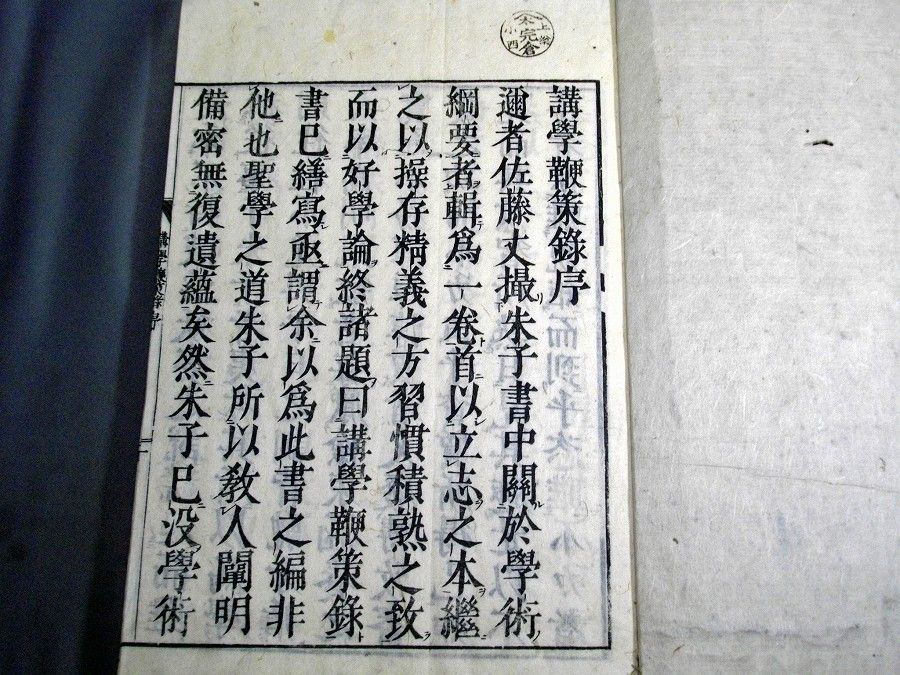 講學鞭策錄序
邇者佐藤丈撮朱子書中關於學術
綱要者輯爲一卷首以立志之本繼
之以操存精義之方習慣積熟之致
而以好學論終諸題曰講學鞭策錄
書已繕寫亟謂余以爲此書之編非
他也聖學之道朱子所以敎人闡明
備密無復遺蘊矣然朱子已沒學術